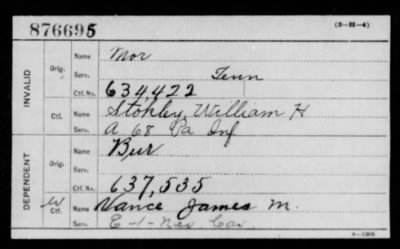 876695
(3-H-4)
INVALID
Orig. Name Mor
Serv. Tenn
Ctf. No. 634,422
Ctf. Name Stokley, William H
Serv. A 68 Pa Inf
DEPENDENT
Orig. Name Bur
Serv.
Ctf. No. 637,535
W Ctf. Name Vance James M.
Serv. E-1-Nev Cav